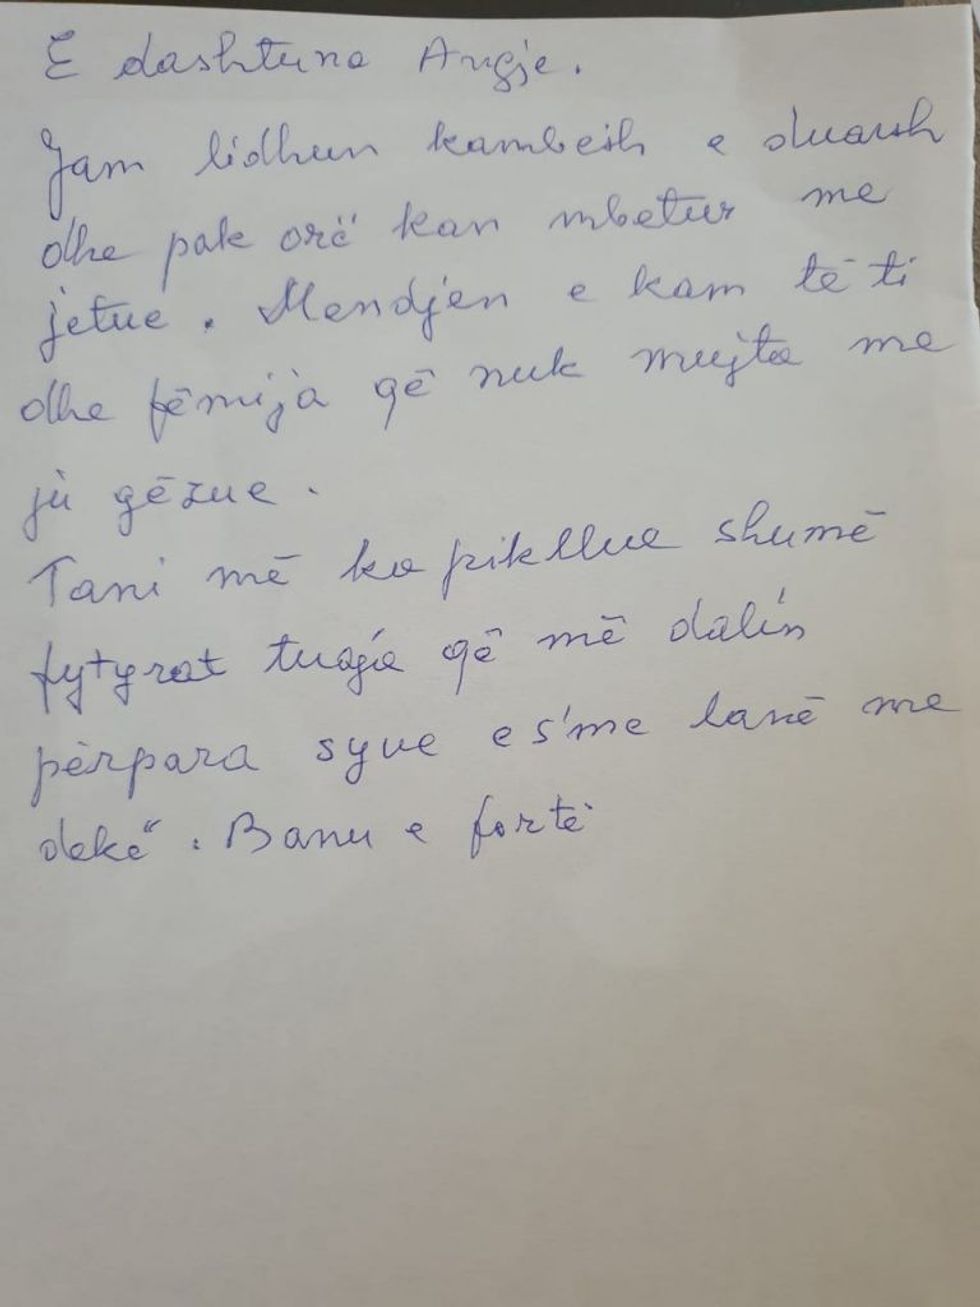 E dashtuna Angje.
Jam lidhun kambësh e duarsh
dhe pak orë kan mbetur me
jetue. Mendjen e kam të ti
dhe fëmija që nuk mujta me
ju gëzue.
Tani më ka pikllue shumë
fytyrat tuaja që më dalin
përpara syve e s'me lanë me
dekë. Banu e fortë